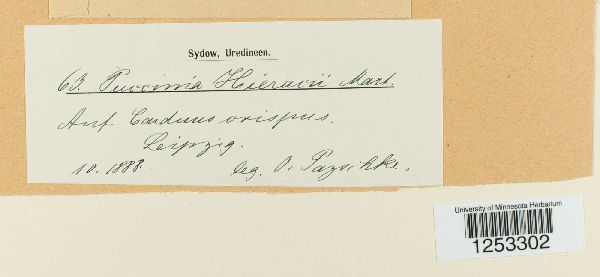 Sydow, Uredineen.
63. Puccinia Hieracii Mart.
Auf Carduus crispus.
Leipzig.
10. 1888. leg. O. Pazschke.
University of Minnesota Herbarium
1253302